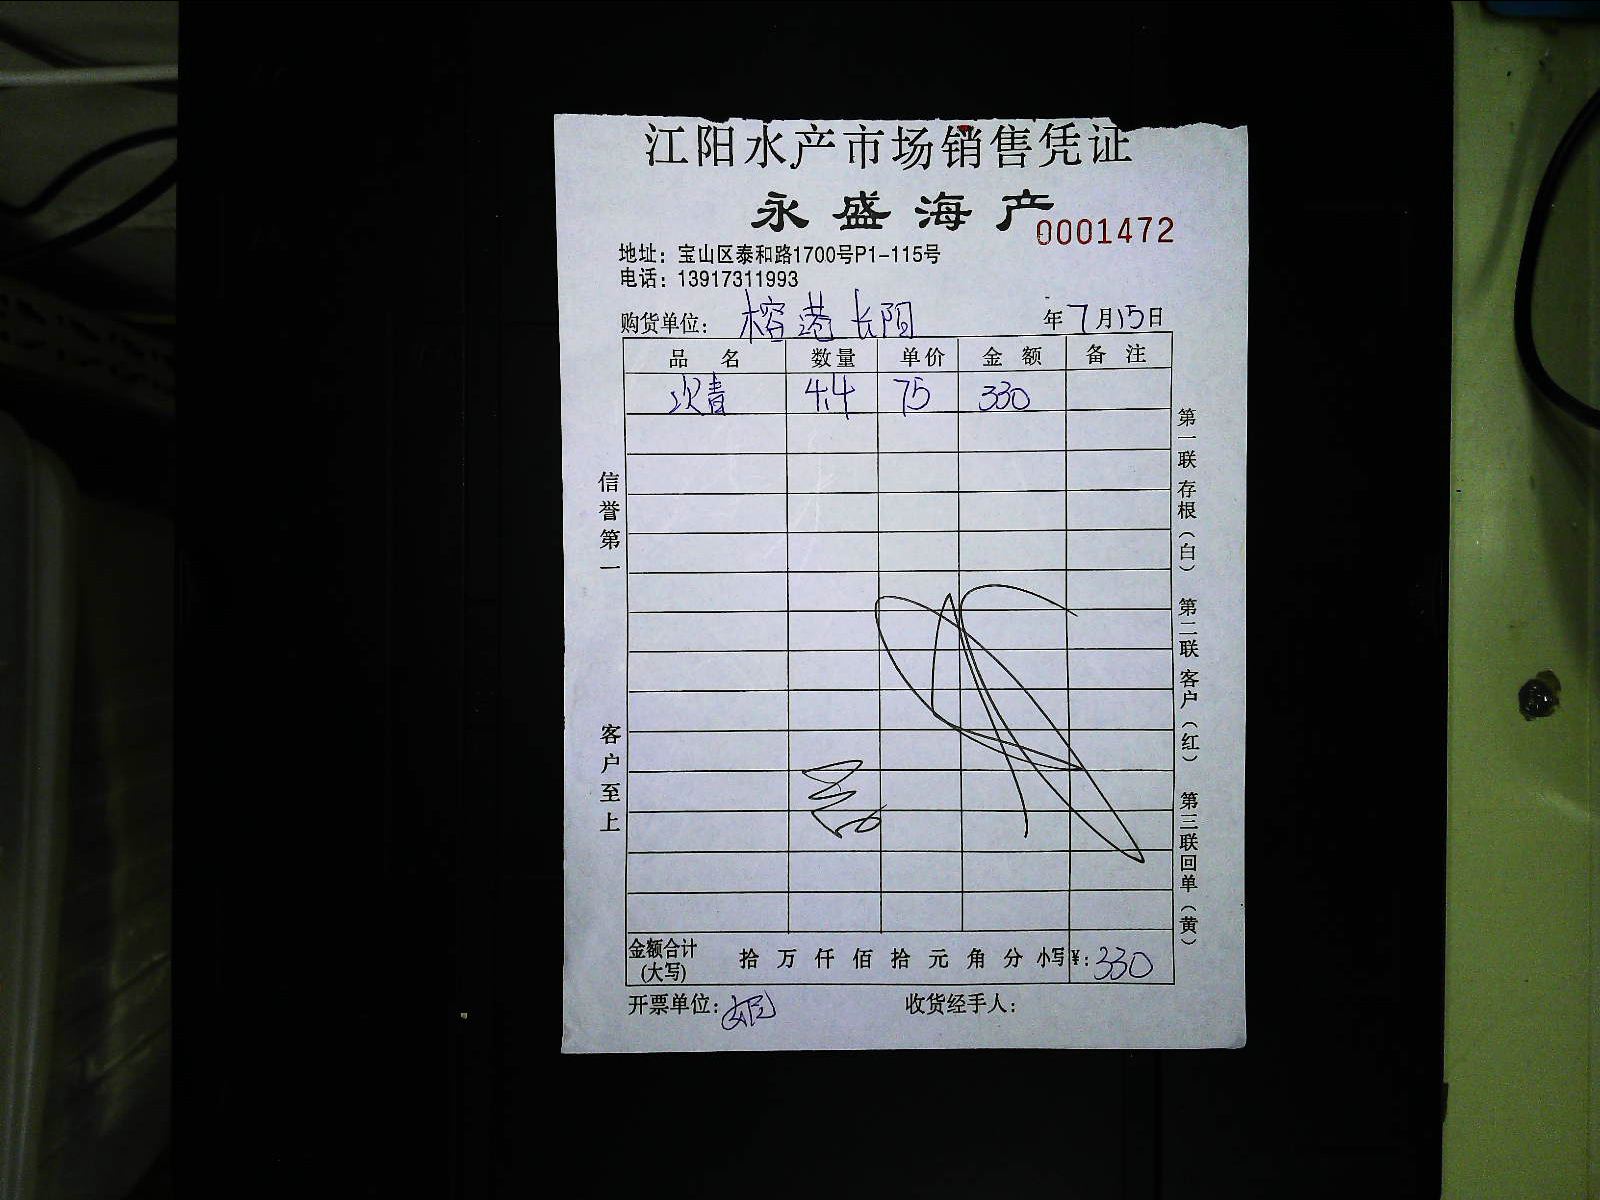 江阳水产市场销售凭证
永盛海产
0001472
地址：宝山区泰和路1700号P1-115号
电话：13917311993
购货单位：榕港长阳 年7月15日
品名 数量 单价 金额 备注
次青 4.4 75 330
信誉第一
客户至上
第一联存根（白） 第二联客户（红） 第三联回单（黄）
金额合计(大写) 拾 万 仟 佰 拾 元 角 分 小写¥：330
开票单位： 收货经手人：